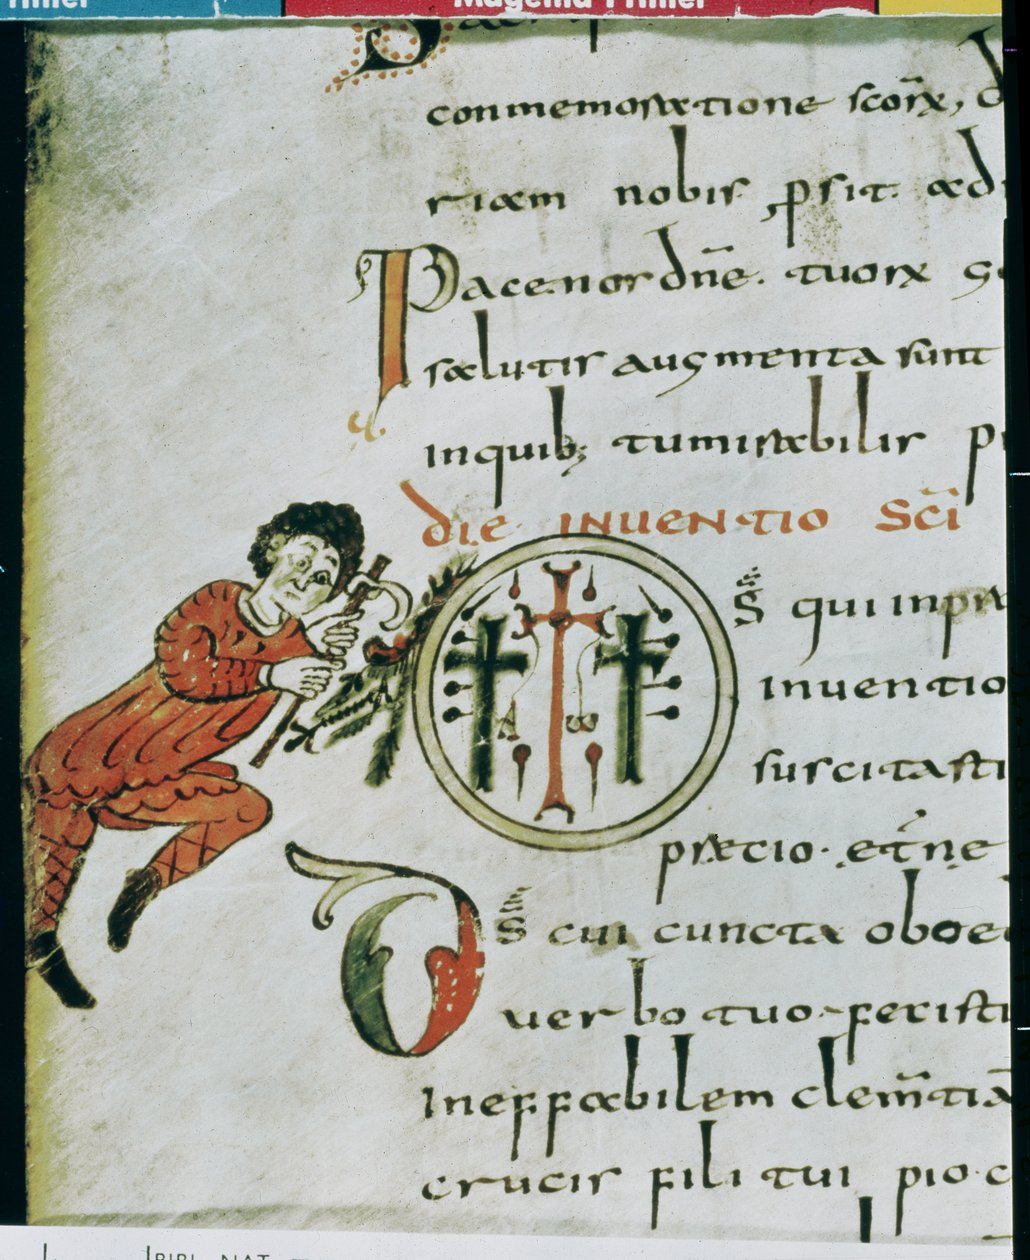 Magenta Primer
conmemoratione scorx, d
riam nobis psit. ad
Pacenos dne. tuorx
salutis augmenta sunt
inquib; tu mirabilis
die inventio Sci
Ds qui in
inventio
suscitasti
precio. et ne
Ds cui cuncta oboe
verbo tuo. fecisti
ineffabilem clemtia
crucis fili tui pio